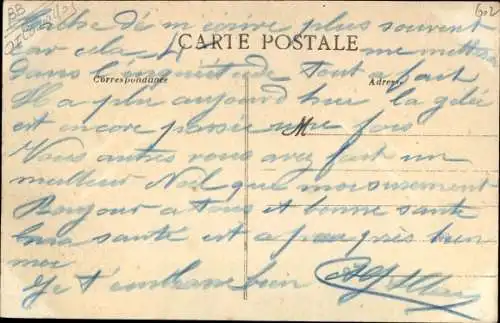 de m'écrire plus souvent
car cela me mettra
CARTE POSTALE
dans l'inquiétude tout a fait
Correspondance
Adresse
Il a plu aujourd hui la gelée
est encore passée une fois
M
Vous autres vous avez fait un
meilleur Noël que moi surement
Bonjour a tous et bonne santé
santé est a peu près bien
moi
Je t'embrasse bien
602
BB